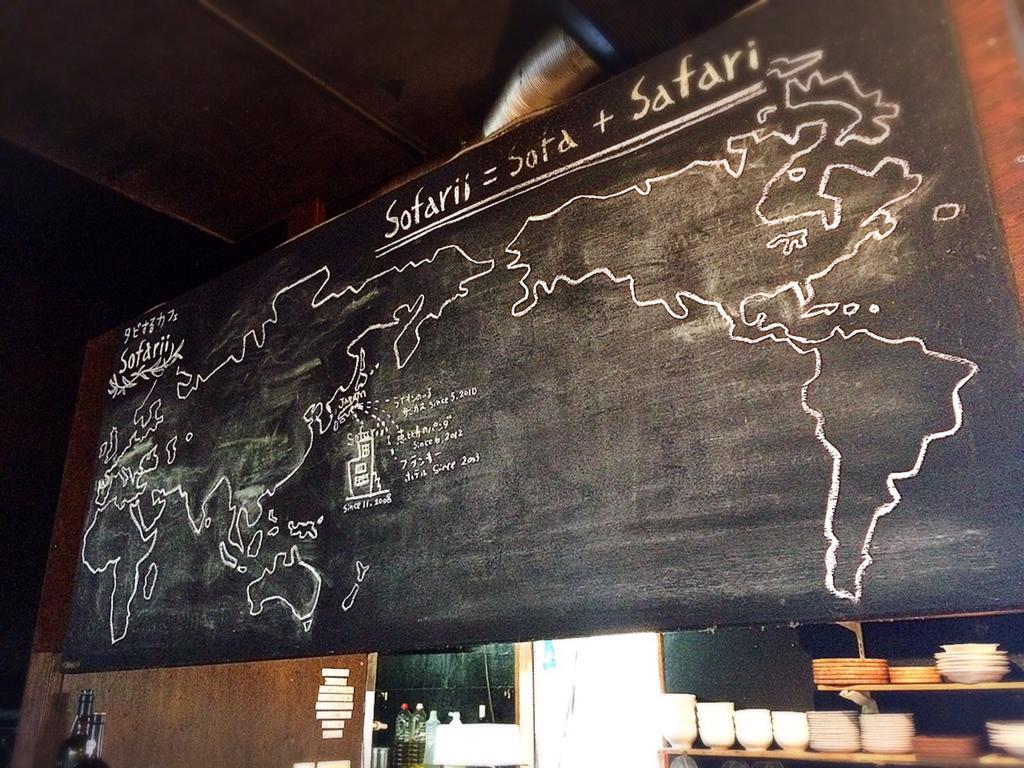 Sofarii = Sofa + Safari
タビするカフェ
Sofarii
JAPAN
Sofarii
since 11.2008
ライオンのいる
サーカス since 5.2010
恵比寿のパンダ
since 6.2012
フランキー
ホテル since 2013